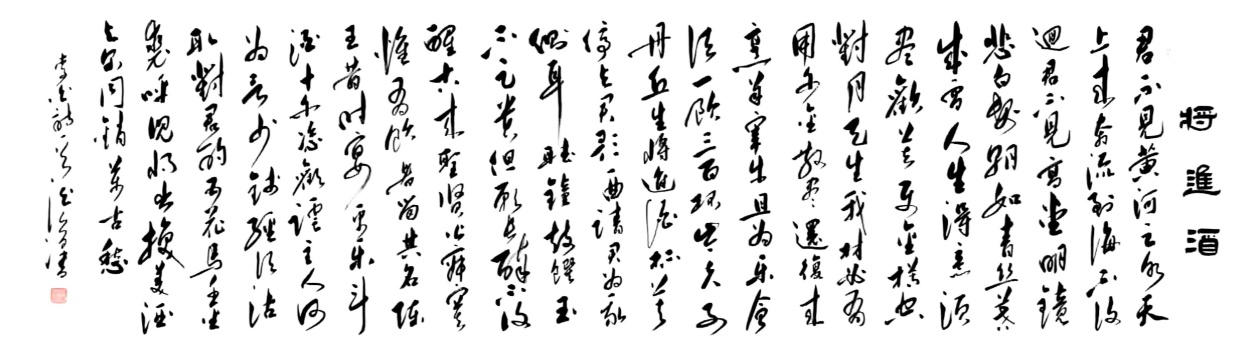 将進酒
君不見黄河之水天
上来奔流到海不復
迴君不見高堂明鏡
悲白髮朝如青丝暮
成雪人生得意須
尽歡莫使金樽空
對月天生我材必有
用千金散尽還復来
烹羊宰牛且为乐會
須一飲三百杯岑夫子
丹丘生将進酒杯莫
停与君歌一曲請君为我
側耳聴鐘鼓饌玉
不足贵但願長醉不復
醒古来聖賢皆寂寞
惟有飲者留其名陈
王昔时宴平乐斗
酒十千恣歡謔主人何
为言少錢径須沽
取對君酌五花馬千金
裘呼児将出换美酒
与尔同銷萬古愁
李白詩一首